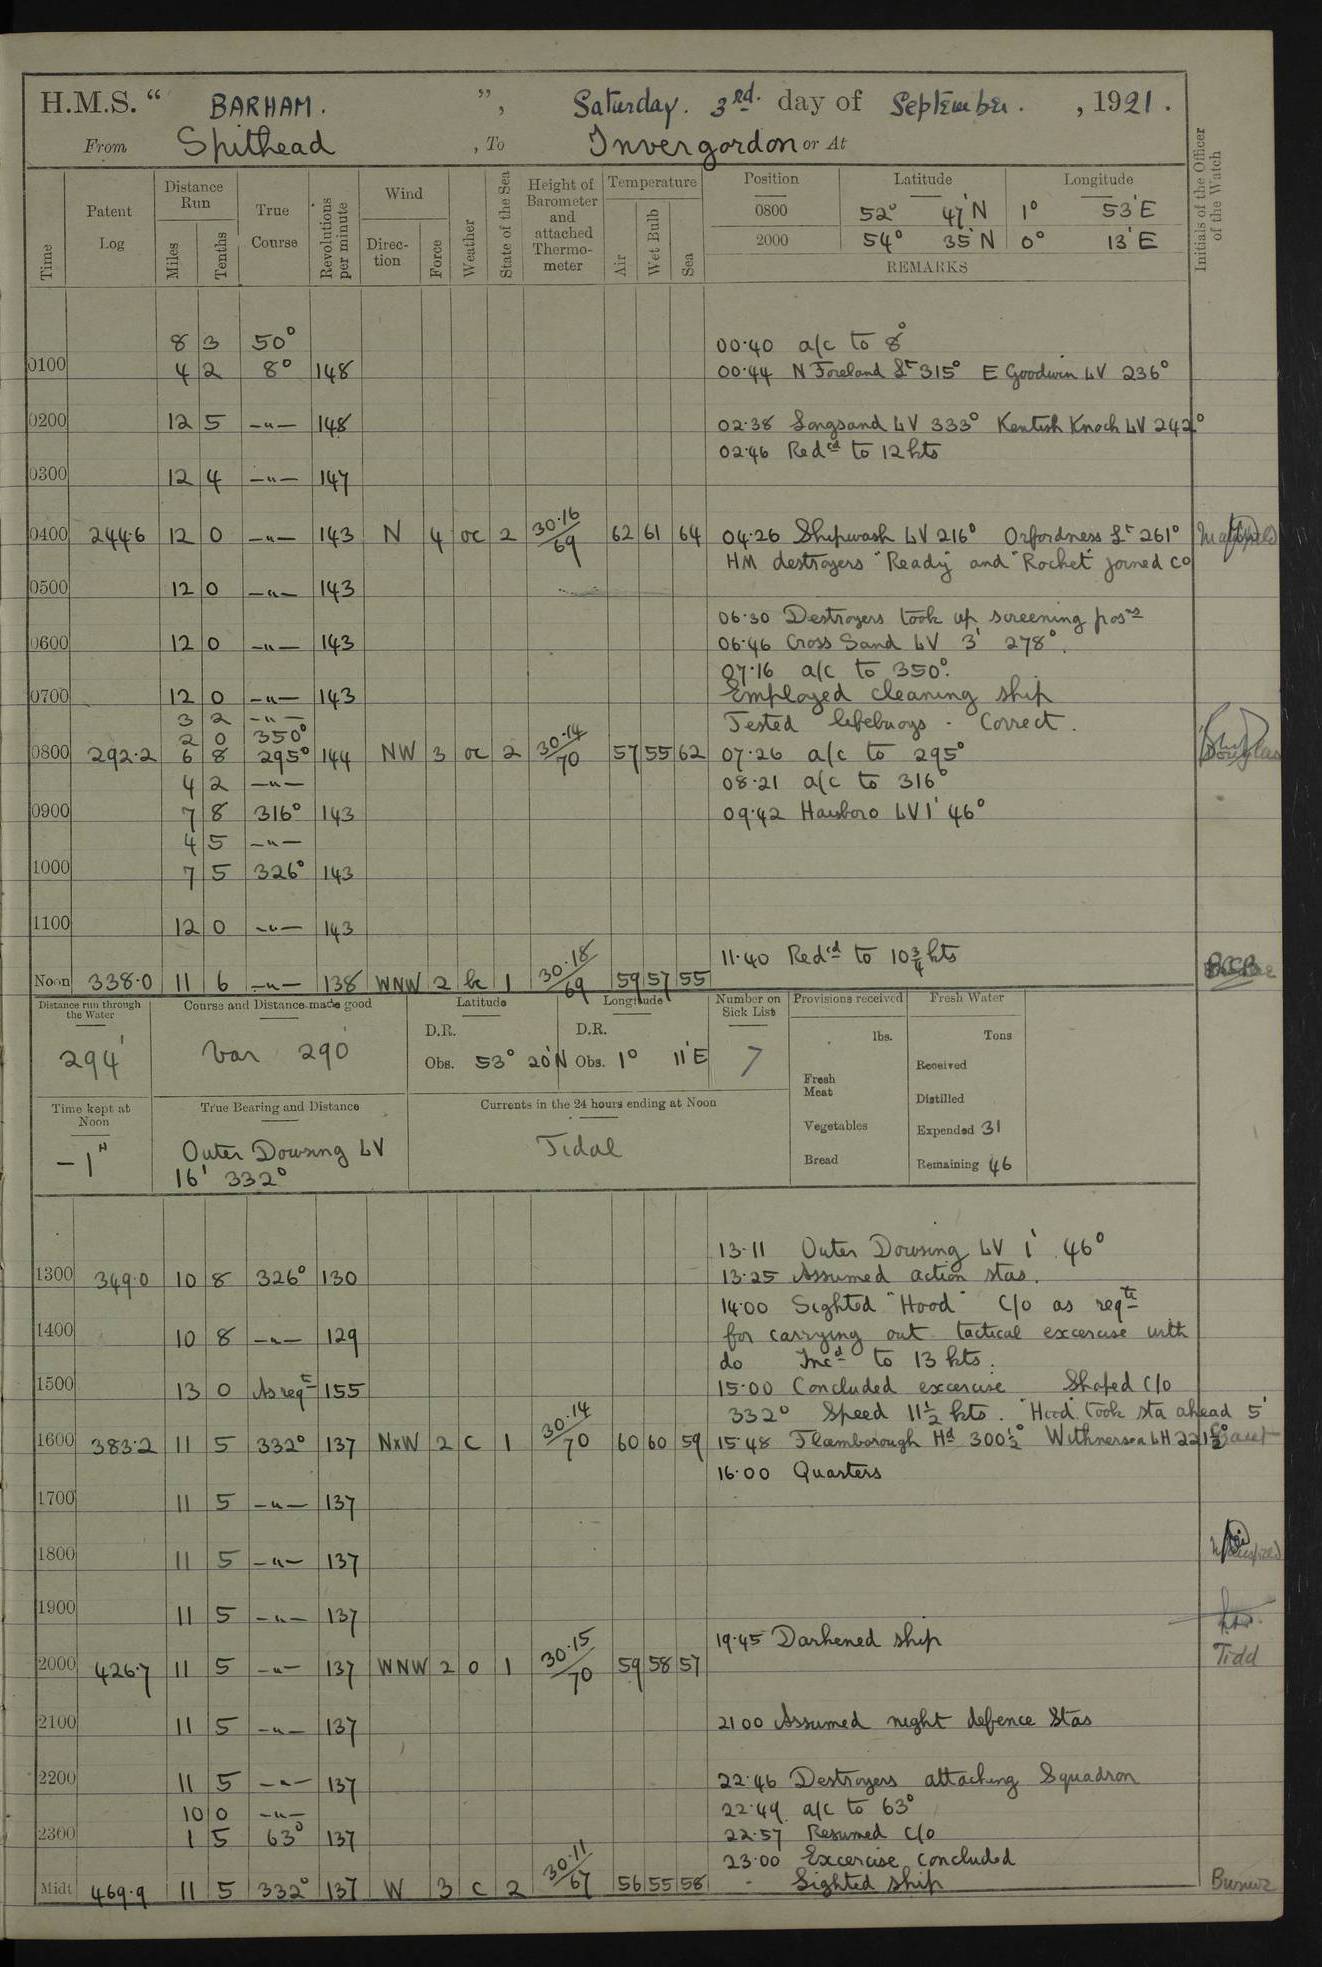 H.M.S. “ BARHAM. ”, Saturday. 3rd. day of September. , 1921.
From Spithead , To Invergordon or At
Time Patent Log Distance Run Miles Tenths True Course Revolutions per minute Wind Direction Force Weather State of the Sea Height of Barometer and attached Thermometer Temperature Air Wet Bulb Sea Position Latitude Longitude Initials of the Officer of the Watch
0800 52° 47' N 1° 53' E
2000 54° 35' N 0° 13' E
REMARKS
8 3 50° 00·40 a/c to 8°
0100 4 2 8° 148 00·44 N Foreland Lt 315° E Goodwin LV 236°
0200 12 5 -"- 148 02·38 Longsand LV 333° Kentish Knock LV 242°
02·46 Redcd to 12 kts
0300 12 4 -"- 147
0400 244·6 12 0 -"- 143 N 4 oc 2 30·16/69 62 61 64 04·26 Shipwash LV 216° Orfordness Lt 261°
HM destroyers "Ready" and "Rocket" joined Co
0500 12 0 -"- 143
06·30 Destroyers took up screening posns
0600 12 0 -"- 143 06·46 Cross Sand LV 3' 278°.
07·16 a/c to 350°.
0700 12 0 -"- 143 Employed cleaning ship
3 2 -"- Tested lifebuoys - Correct.
2 0 350°
0800 292·2 6 8 295° 144 NW 3 oc 2 30·14/70 57 55 62 07·26 a/c to 295° Douglas
4 2 -"- 08·21 a/c to 316°
0900 7 8 316° 143 09·42 Haisboro LV 1' 46°
4 5 -"-
1000 7 5 326° 143
1100 12 0 -"- 143
11·40 Redcd to 10¾ kts
Noon 338·0 11 6 -"- 138 WNW 2 bc 1 30·18/69 59 57 55
Distance run through the Water Course and Distance made good Latitude Longitude Number on Sick List Provisions received Fresh Water
D.R. D.R. lbs. Tons
294' Var 290 Obs. 53° 20' N Obs. 1° 11' E 7 Received
Fresh Meat Distilled
Time kept at Noon True Bearing and Distance Currents in the 24 hours ending at Noon Vegetables Expended 31
-1H Outer Dowsing LV Tidal Bread Remaining 46
16' 332°
13·11 Outer Dowsing LV 1' 46°
1300 349·0 10 8 326° 130 13·25 Assumed action stas.
14·00 Sighted "Hood" C/o as reqte
1400 10 8 -"- 129 for carrying out tactical excercise with
do Incd to 13 kts.
1500 13 0 As reqte 155 15·00 Concluded excercise Shaped C/o
332° Speed 11½ kts. "Hood" took sta ahead 5'
1600 383·2 11 5 332° 137 NxW 2 c 1 30·14/70 60 60 59 15·48 Flamborough Hd 300½° Withnersea LH 221½°
16·00 Quarters
1700 11 5 -"- 137
1800 11 5 -"- 137
1900 11 5 -"- 137
19·45 Darkened ship
2000 426·7 11 5 -"- 137 WNW 2 o 1 30·15/70 59 58 57 Tidd
2100 11 5 -"- 137 2100 Assumed night defence Stas
2200 11 5 -"- 137 22·46 Destroyers attacking Squadron
10 0 -"- 22·49 a/c to 63°
2300 1 5 63° 137 22·57 Resumed C/o
23·00 Excercise concluded
Midt 469·9 11 5 332° 137 W 3 c 2 30·11/67 56 55 58 - Sighted ship